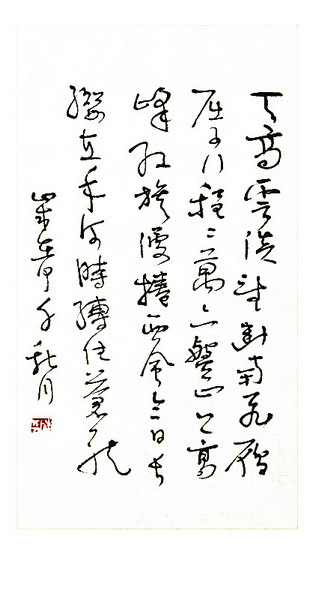 天高雲淡望斷南飛雁
屈指行程二萬六盤山上高
峰紅旗漫捲西風今日長
纓在手何時縛住蒼龍
秋月